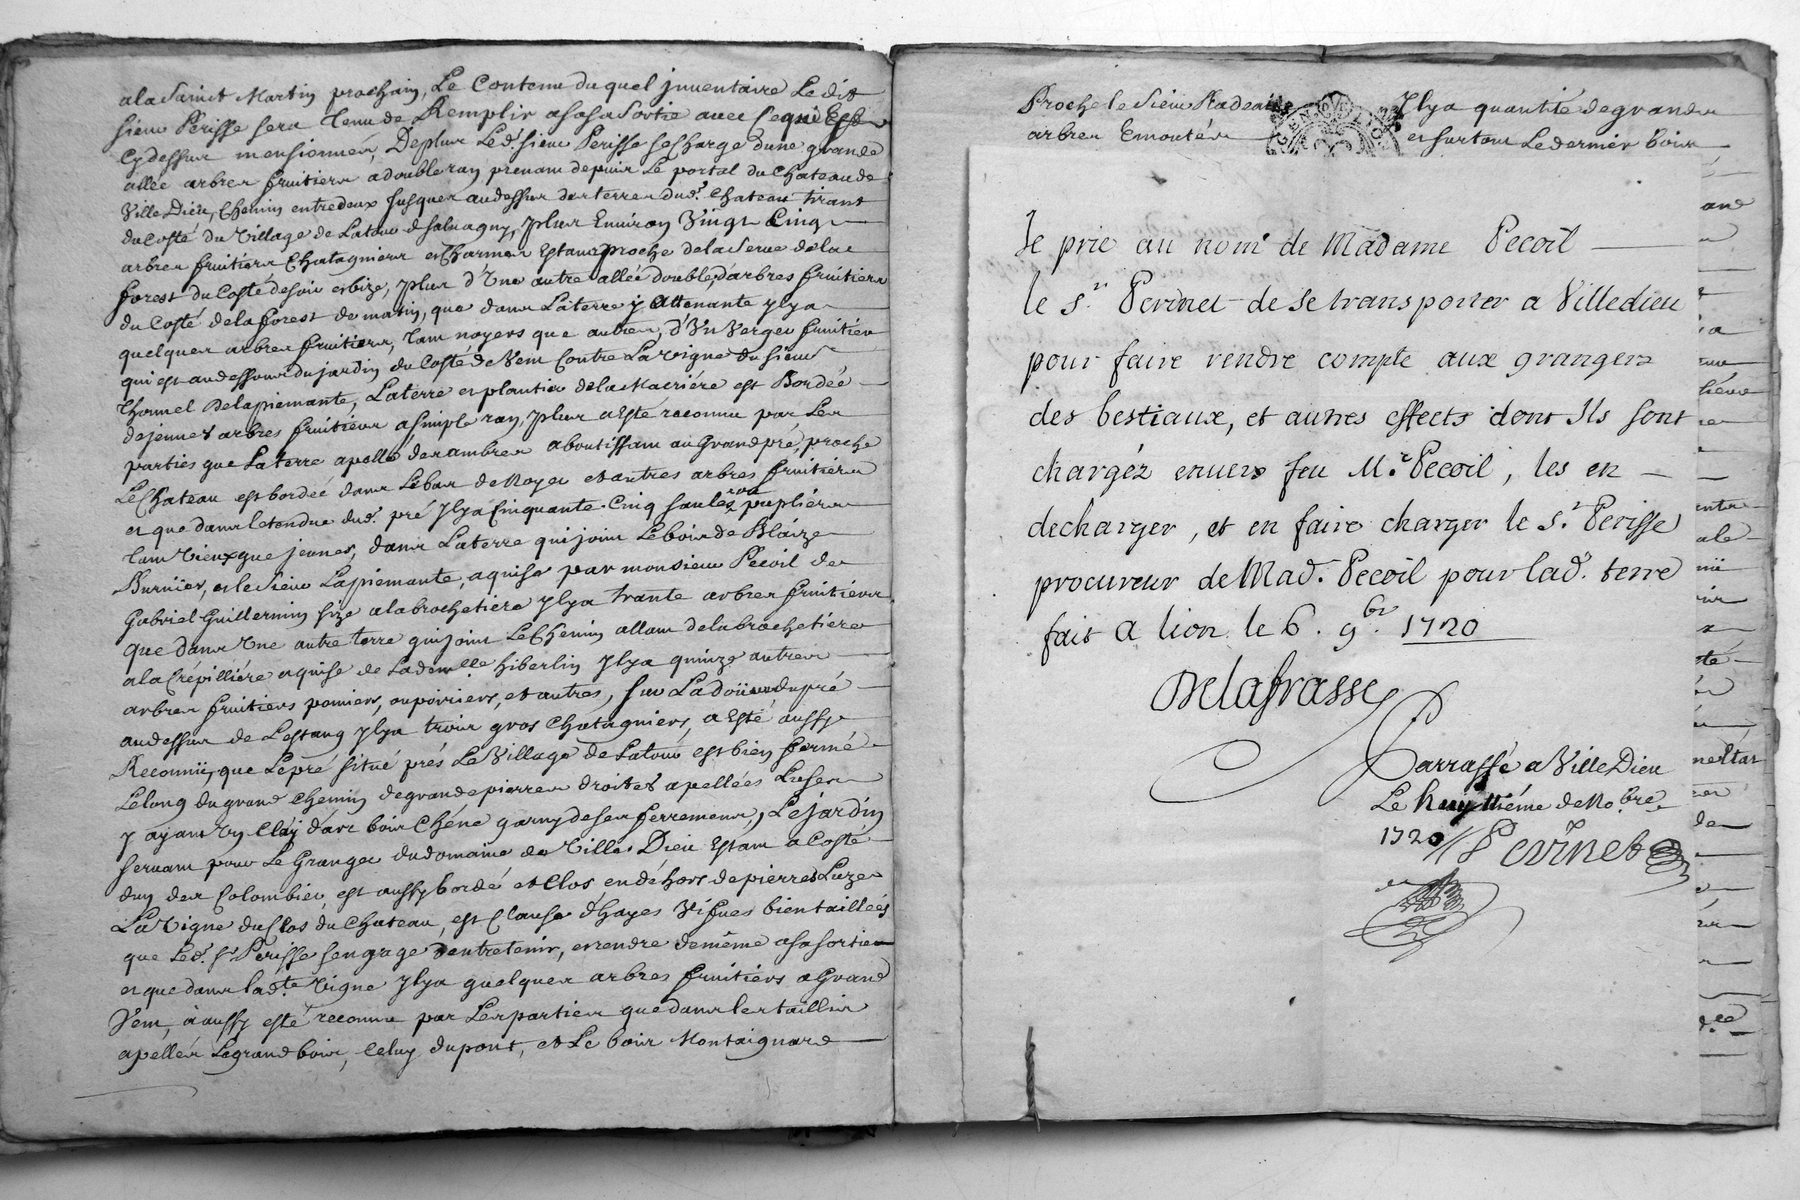 ala Sainct Martin prochain, Le Contenu du quel jnventaire Le dit
sieur Périsse sera Tenu de Remplir a sa Sortie avec ce qui Est
Cy dessus mensionnés, De plus Led. sieur Perisse se Charge d'une grande
allée arbres fruitiers a double ran prenant depuis Le portal du Chateau de
Ville Dieu, Chemin entre deux Jusques au dessus des terres dud. Chateau tirant
du Costé du Village de Latour d'salvagny, plus Environ Vingt Cinq
arbres fruitiers Chatagniers et Charmes Estans proche de la Serve de la
forest du Costé de soir et bize, plus d'Une autre allée double d'arbres fruitiers
du Costé de la forest de matin, que dans La terre y attenante ylya
quelques arbres fruitiers, Tant noyers que autres, d'Un Verger fruitier
qui est au dessous du jardin du Costé de Vent Contre La Vigne du sieur
Thomel Delapiemante, La terre et plantier de la Matiére est Bordée
de jeunes arbres fruitiers a simple ran, plus a Esté reconnu par Les
parties que La terre apellé des ambres aboutissant au Grand pré, proche
Le Chateau est bordée dans Le bas de Noyer et autres arbres fruitiérs
et que dans letendue dud. pré Jlya Cinquante Cinq saules ou pupliérs
Tant Vieux que jeunes, dans La terre qui joint Le bois de Blaize
Burnier, et le Sieur Lapiemante, aquise par monsieur Pécoil de
Gabriel Guillermin size a la brochetiére Jlya trante arbres fruitiérs
que dans Une autre terre qui joint Le Chemin allant de la brochetiére
a la Crépilliére aquise de Lademlle hiberlin Jlya quinze autres
arbres fruitiers pomiers, ou poiriers, et autres, sur La doüve du pré
au dessus de Lestang Jlya trois gros Chatagniers, a Esté aussy
Reconnü, que Le pré situé prés Le Village de Latour est bien fermé
Le long du grand Chemin de grande pierres droites apellées Luses
y ayant Un Cläy dans bois Chéne garny de ses ferremens, Le jardin
servant pour Le Granger du domaine de Ville Dieu Estant a Costé
d'un des Colombier, est aussy bordé et Clos en déhors de pierres Luzes
La Vigne du Clos du Chateau, est Clause d'hayes Vifves bien taillées
que Led. sr. Perisse s'engage d'entretenir, et rendre de même a sa sortie
et que dans lad.te Vigne Jlya quelques arbres fruitiérs a Grand
Vent, a aussy esté reconnu par Les parties que dans les taillis
apellés Le grand bois, Celuy du pont, et Le bois Montaignard
Proche le Sieur Jlya quantité de grands
arbres Emontés et surtout Le dernier bois
Je prie au nom de Madame Pecoil
le Sr. Perinet de se transporter a Villedieu
pour faire rendre compte aux grangers
des bestiaux, et autres effects dont Ils sont
chargéz envers feu Mr. Pecoil, les en
decharger, et en faire charger le Sr. Perisse
procureur de Mad. Pecoil pour lad. terre
fait a lion le 6. 9br. 1720
Delafrasse
Parraffé a Ville Dieu
Le huytiéme de No.bre
1720 // Perinet